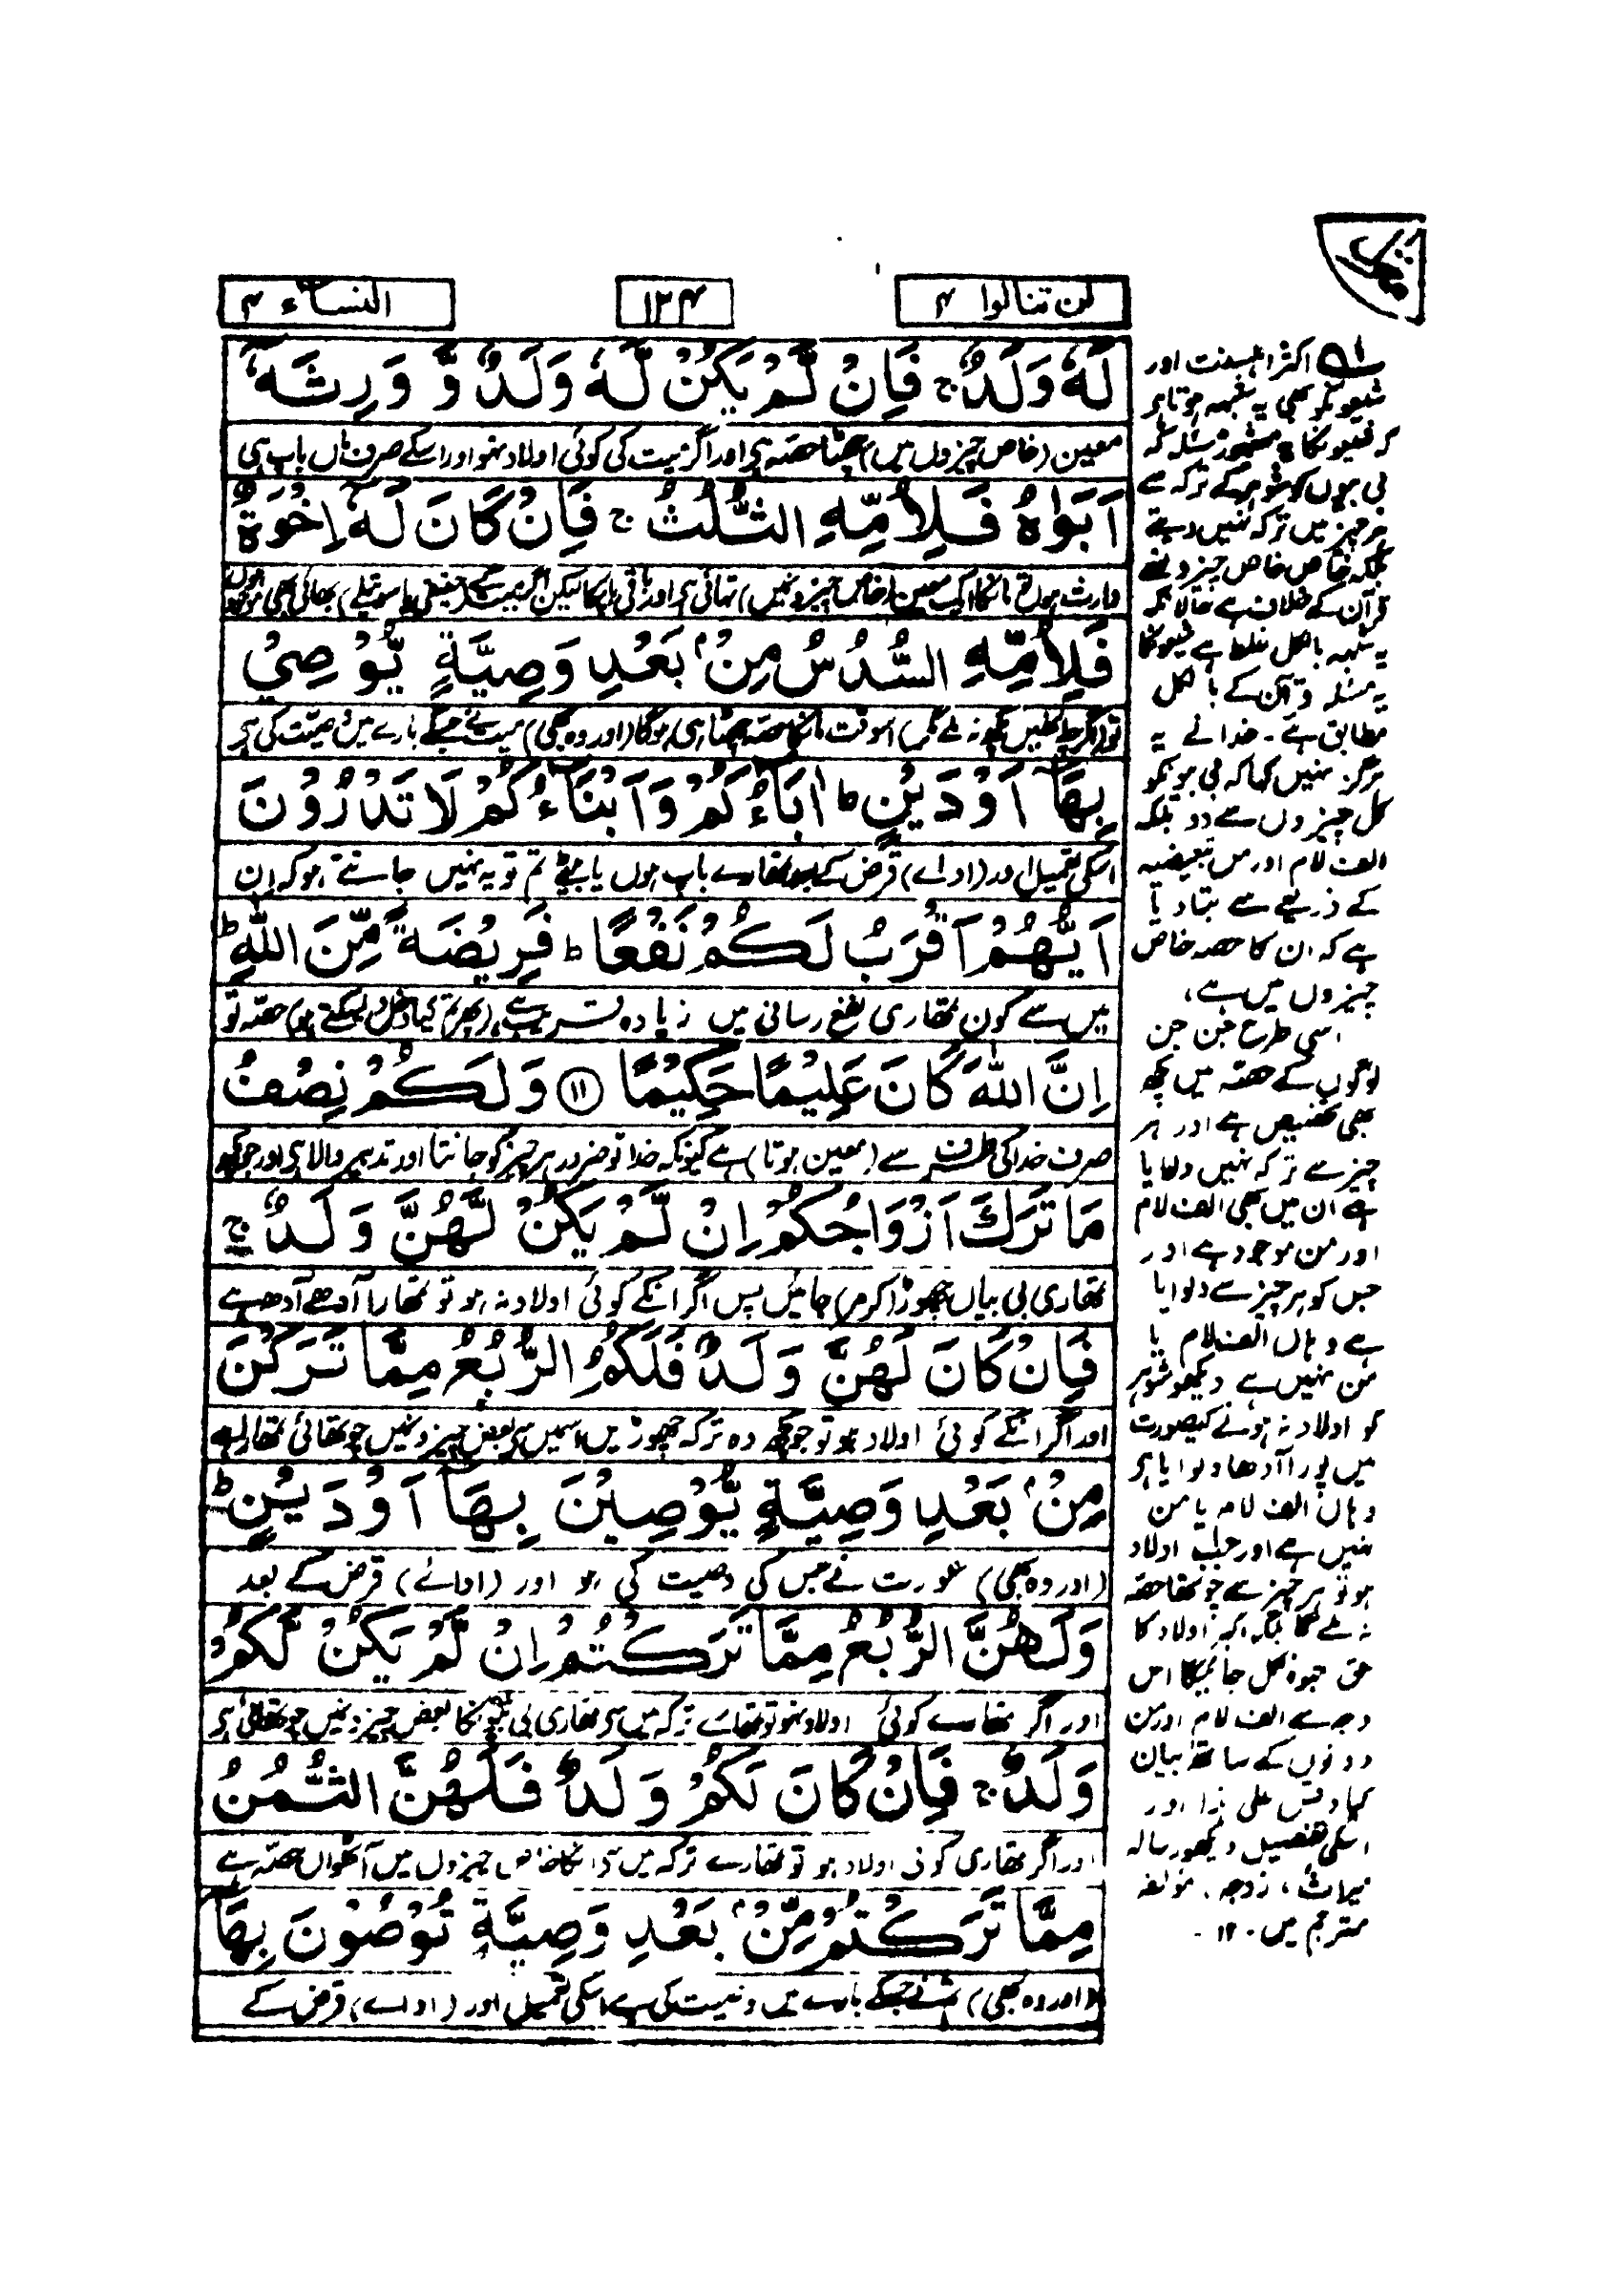 لن تنالوا ۴
۱۲۴
النساء ۴
لَهٗ وَلَدٌ ۚ فَاِنْ لَّمْ يَكُنْ لَّهٗ وَلَدٌ وَّ وَرِثَهٗٓ
معین (خاص چیزوں میں) چھٹا حصہ ہی اور اگر میت کی کوئی اولاد نہو اور اسکے صرف ماں باپ ہی
اَبَوٰهُ فَلِاُمِّهِ الثُّلُثُ ۚ فَاِنْ كَانَ لَهٗٓ اِخْوَةٌ
وارث ہوں تو مانکا ایک معین (خاص چیزونمیں) تہائی ہی اور باقی باپکا لیکن اگر میت کے حقیقی یا سوتیلے) بھائی بھی موجود ہوں
فَلِاُمِّهِ السُّدُسُ مِنْۢ بَعْدِ وَصِيَّةٍ يُّوْصِيْ
تو (اگرچہ انھیں کچھ نہ ملے مگر) اسوقت مانکا حصہ چھٹا ہی ہوگا (اور وہ بھی) میت نے جسکے بارے میں وصیت کی ہی
بِهَآ اَوْ دَيْنٍ ۭ اٰبَآؤُكُمْ وَاَبْنَآؤُكُمْ لَا تَدْرُوْنَ
اسکی تعمیل اور (اداے) قرض کے بعد تمھارے باپ ہوں یا بیٹے تم تو یہ نہیں جانتے ہو کہ ان
اَيُّهُمْ اَقْرَبُ لَكُمْ نَفْعًا ۭ فَرِيْضَةً مِّنَ اللّٰهِ ۭ
میں سے کون تمھاری نفع رسانی میں زیادہ قریب ہے (پھر تم کیا دخل دیسکتے ہو) حصہ تو
اِنَّ اللّٰهَ كَانَ عَلِيْمًا حَكِيْمًا ﴿۱۱﴾ وَلَكُمْ نِصْفُ
صرف خدا کی طرف سے (معین ہوتا) ہے کیونکہ خدا تو ضرور ہر چیز کو جانتا اور تدبیر والا ہی اور جو کچھ
مَا تَرَكَ اَزْوَاجُكُمْ اِنْ لَّمْ يَكُنْ لَّهُنَّ وَلَدٌ ۚ
تمھاری بی بیاں چھوڑ (کر مر) جائیں پس اگر انکے کوئی اولاد نہ ہو تو تمھارا آدھے آدھ ہے
فَاِنْ كَانَ لَهُنَّ وَلَدٌ فَلَكُمُ الرُّبُعُ مِمَّا تَرَكْنَ
اور اگر انکے کوئی اولاد ہو تو جو کچھ وہ ترکہ چھوڑیں اسمیں سے بعض چیزونمیں چوتھائی تمھارا ہے
مِنْۢ بَعْدِ وَصِيَّةٍ يُّوْصِيْنَ بِهَآ اَوْ دَيْنٍ ۭ
(اور وہ بھی) عورت نے جس کی وصیت کی ہو اور (ادائے) قرض کے بعد
وَلَهُنَّ الرُّبُعُ مِمَّا تَرَكْتُمْ اِنْ لَّمْ يَكُنْ لَّكُمْ
اور اگر تمھارے کوئی اولاد نہو تو تمھارے ترکہ میں سے تمھاری بی بیونکا بعض چیزونمیں چوتھائی ہی
وَلَدٌ ۚ فَاِنْ كَانَ لَكُمْ وَلَدٌ فَلَهُنَّ الثُّمُنُ
اور اگر تمھاری کوئی اولاد ہو تو تمھارے ترکہ میں سے انکا خاص چیزوں میں آٹھواں حصہ ہے
مِمَّا تَرَكْتُمْ مِّنْۢ بَعْدِ وَصِيَّةٍ تُوْصُوْنَ بِهَآ
(اور وہ بھی) تمنے جسکے بارے میں وصیت کی ہے اسکی تعمیل اور (اداے) قرض کے
اکثر اہلسنت اور
شیعونکو بھی یہ شبہہ ہوتا ہی
کہ شیعونکا مشہور مسئلہ کہ
بی بیوں کو شوہر کے ترکہ سے
ہر چیز میں ترکہ نہیں دیتے
بلکہ خاص خاص چیزونسے
قرآن کے خلاف ہے حالانکہ
یہ شبہہ بالکل غلط ہے شیعونکا
یہ مسئلہ قرآن کے بالکل
مطابق ہے۔ خدا نے یہ
ہرگز نہیں کہا کہ بی بیونکو
کل چیزوں سے دو بلکہ
الف لام اور من تبعیضیہ
کے ذریعے سے بتا دیا
ہے کہ ان کا حصہ خاص
چیزوں میں ہے،
اسی طرح جن جن
لوگوں کے حصہ میں کچھ
بھی تخصیص ہے اور ہر
چیز سے ترکہ نہیں دلایا
ہے ان میں بھی الف لام
اور من موجود ہے اور
جس کو ہر چیز سے دلوایا
ہے وہاں الف لام یا
من نہیں ہے دیکھو شوہر
کو اولاد نہ ہونے کیصورت
میں پورا آدھا دلوایا ہی
وہاں الف لام یا من
نہیں ہے اور جب اولاد
ہو تو ہر چیز سے چوتھا حصہ
نہ ملے گا بلکہ اکبر اولاد کا
حق حبوہ نکل جائیگا اس
وجہ سے الف لام اور من
دونوں کے ساتھ بیان
کیا وقس علی ہذا اور
اسکی تفصیل دیکھو رسالہ
میراث زوجہ مؤلفہ
مترجم میں ۱۲۰